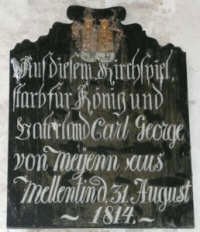 Aus diesem Kirchspiel,
starb für König und
Vaterland Carl George
von Meyenn aus
Mellentin d. 31. August
~ 1814. ~